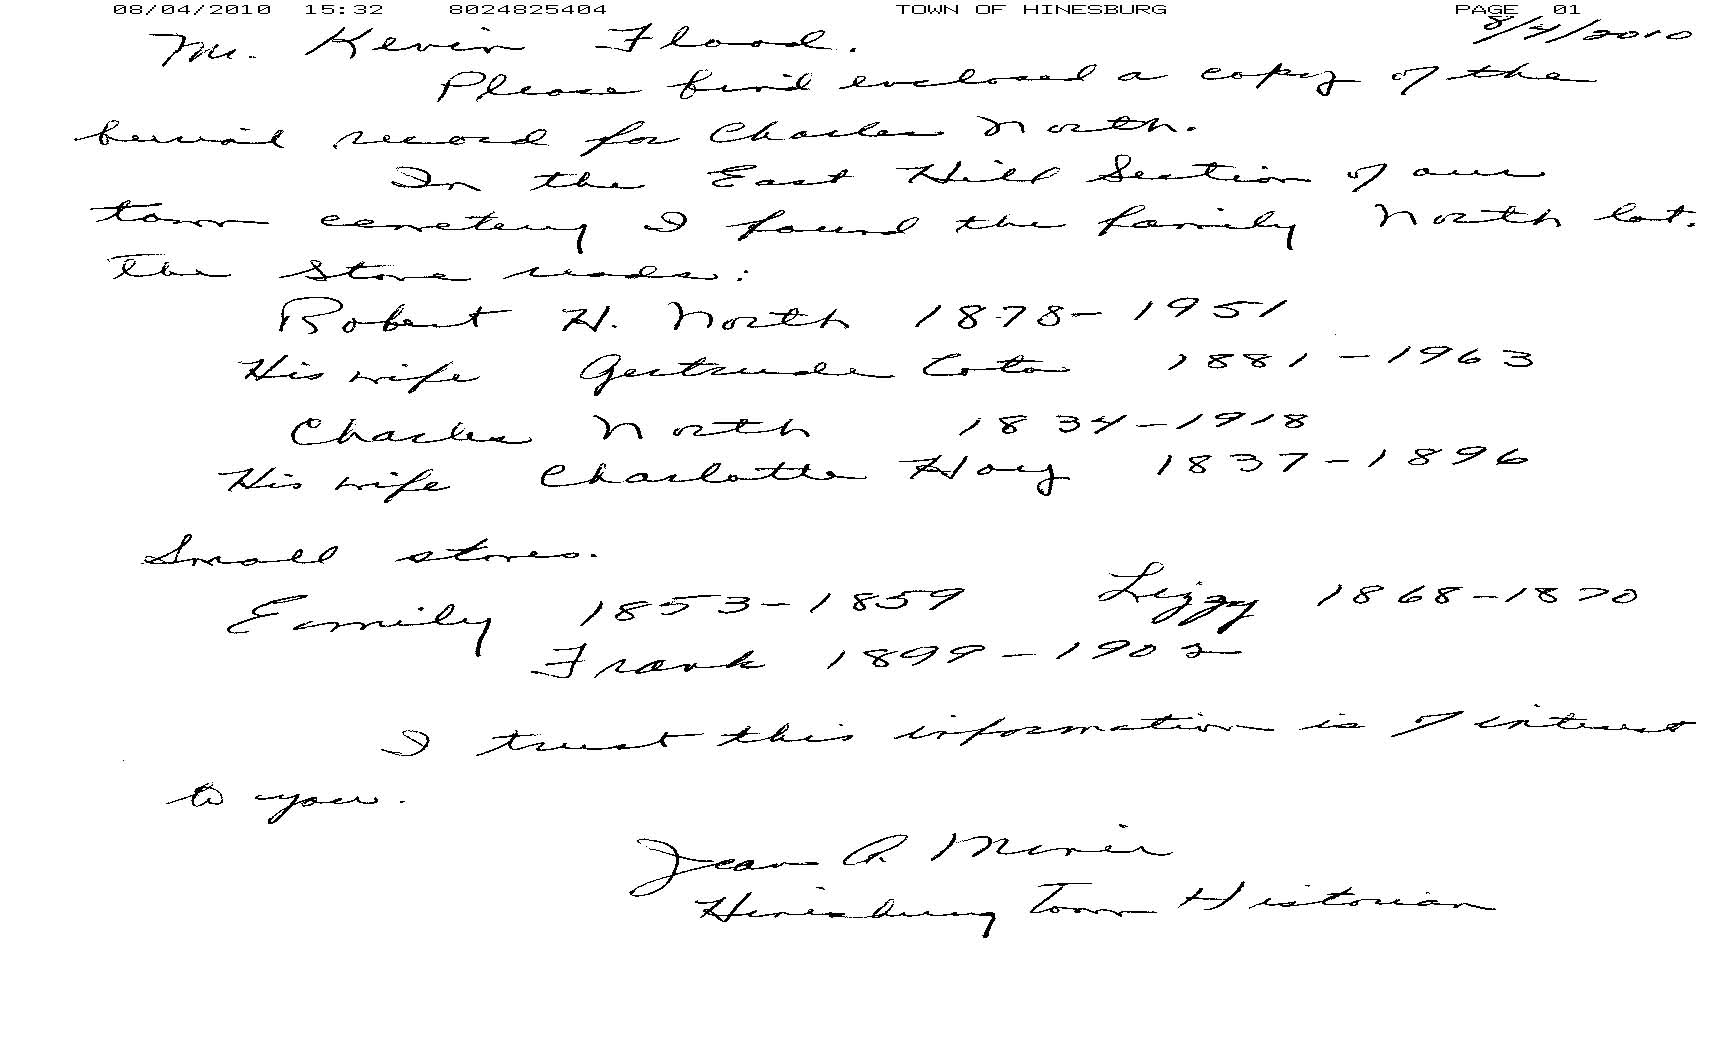 08/04/2010 15:32 8024825404 TOWN OF HINESBURG PAGE 01
8/4/2010
Mr. Kevin Flood.
Please find enclosed a copy of the
burial record for Charles North.
In the East Hill Section of our
town cemetery I found the family North lot.
The Stone reads:
Robert H. North 1878-1951
His wife Gertrude 1881-1963
Charles North 1834-1918
His wife Charlotte Hoag 1837-1896
Small stones.
Emily 1853-1859 Lizzy 1868-1870
Frank 1899-1902
I trust this information is of interest
to you.
Jean A. Miner
Hinesburg Town Historian